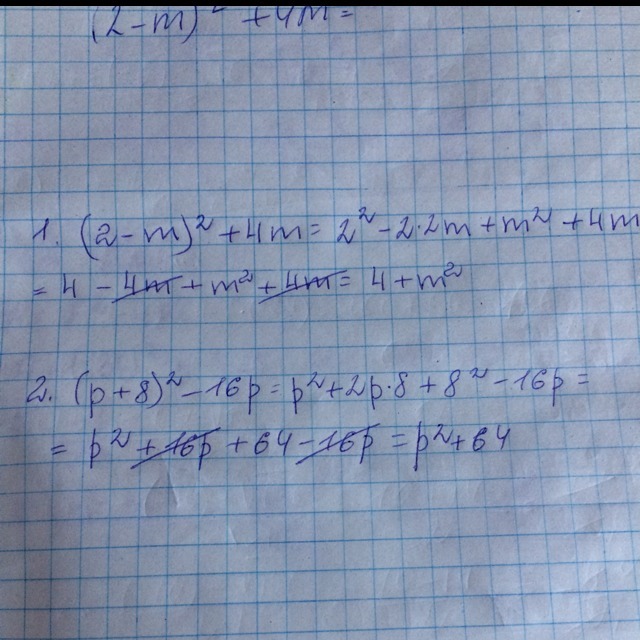 (2-m)² +4m=
1. (2-m)²+4m=2²-2·2m+m²+4m
= 4 -4m+m²+4m= 4+m²
2. (p+8)²-16p=p²+2p·8+8²-16p=
= p²+16p+64-16p=p²+64